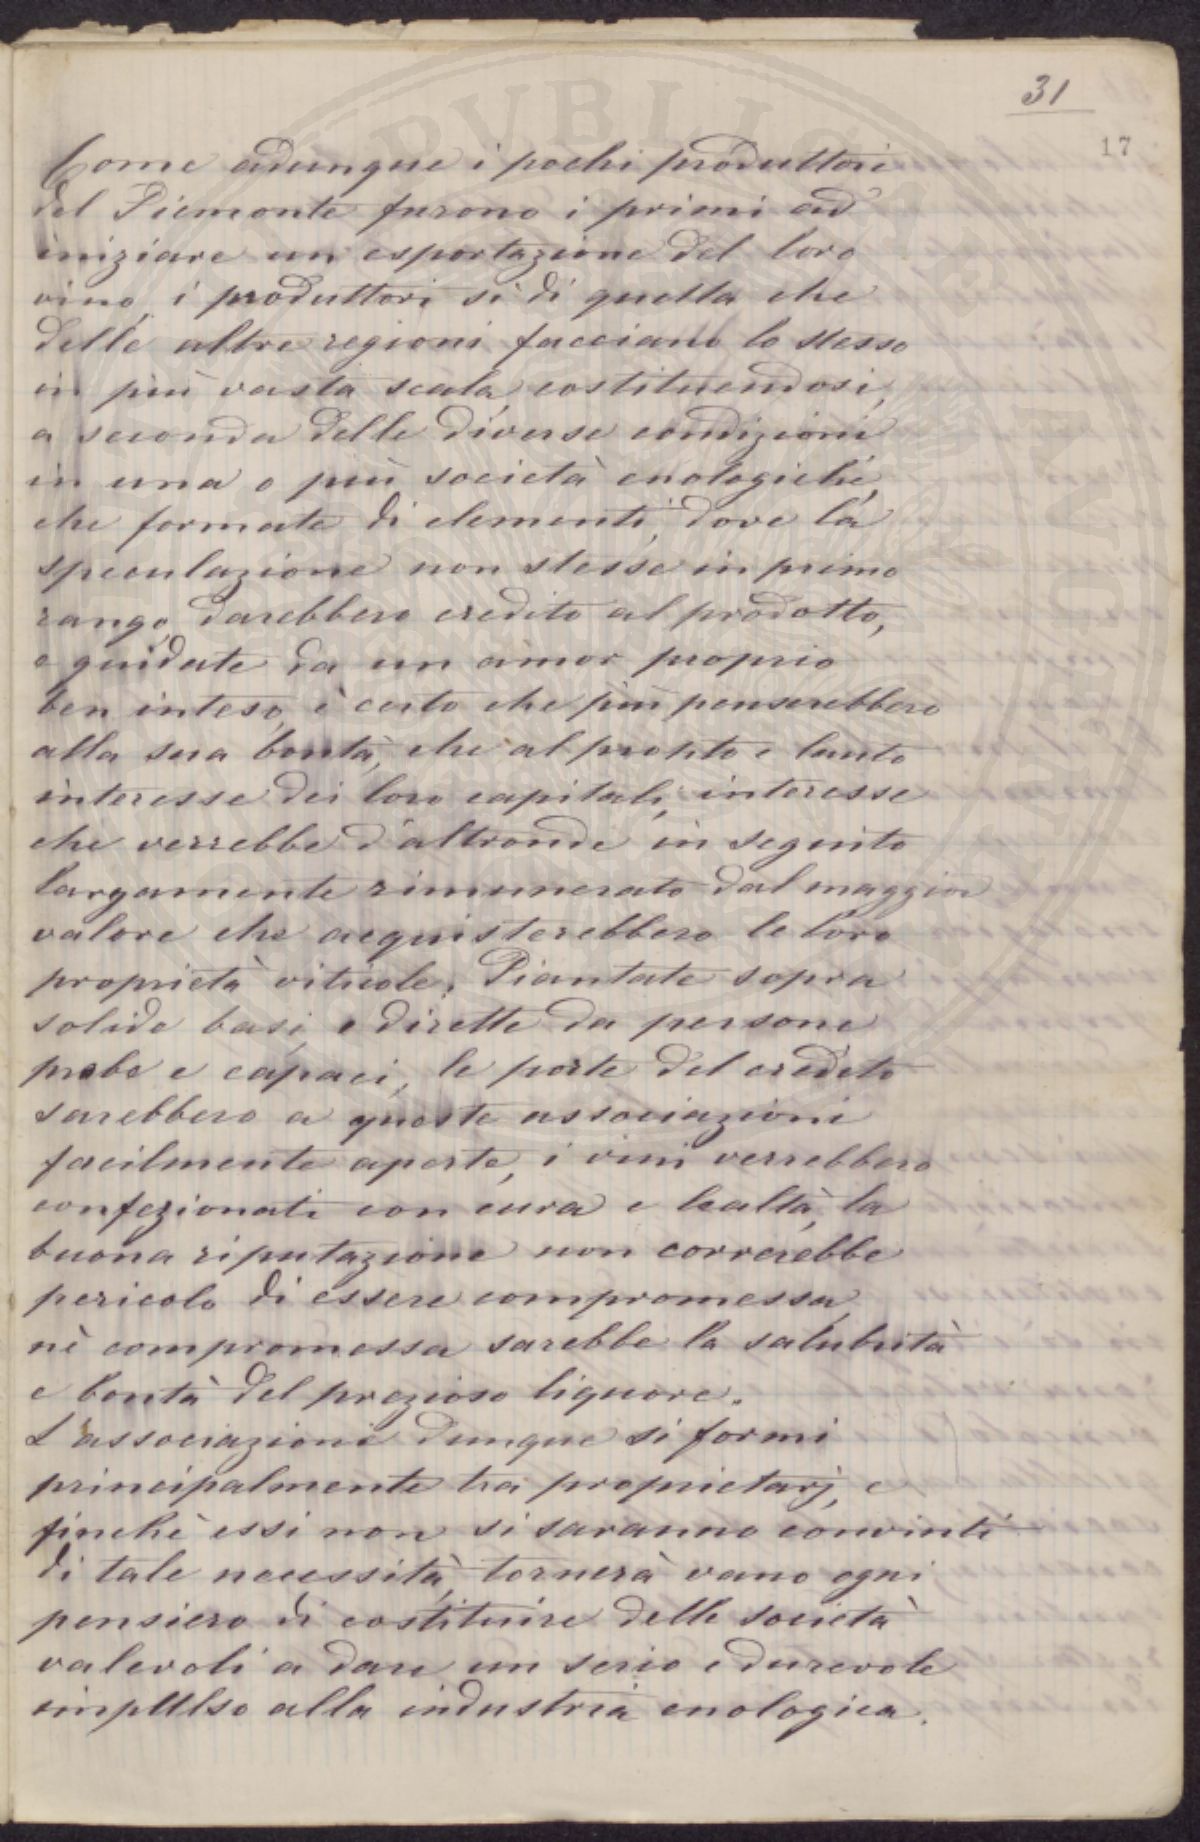 31
17
Come adunque i pochi produttori
del Piemonte furono i primi ad
iniziare un esportazione del loro
vino, i produttori sì di quella che
delle altre regioni facciano lo stesso
in più vasta scala, costituendosi,
a seconda delle diverse condizioni
in una o più società enologiche,
che formate di elementi, dove la
speculazione non stesse in primo
rango, darebbero credito al prodotto,
e guidate da un amor proprio
ben inteso, è certo che più penserebbero
alla sua bontà, che al pronto e lauto
interesse dei loro capitali, interesse
che verrebbe d'altronde in seguito
largamente rimunerato dal maggior
valore che acquisterebbero le loro
proprietà viticole. Piantate sopra
solide basi, e dirette da persone
probe e capaci, le porte del credito
sarebbero a queste associazioni
facilmente aperte, i vini verrebbero
confezionati con cura e lealtà, la
buona riputazione non correrebbe
pericolo di essere compromessa,
nè compromessa sarebbe la salubrità
e bontà del prezioso liquore.
L'associazione dunque si formi
principalmente tra proprietarj, e
finchè essi non si saranno convinti
di tale necessità, tornerà vano ogni
pensiero di costituire delle società
valevoli a dare un serio e durevole
impulso alla industria enologica.